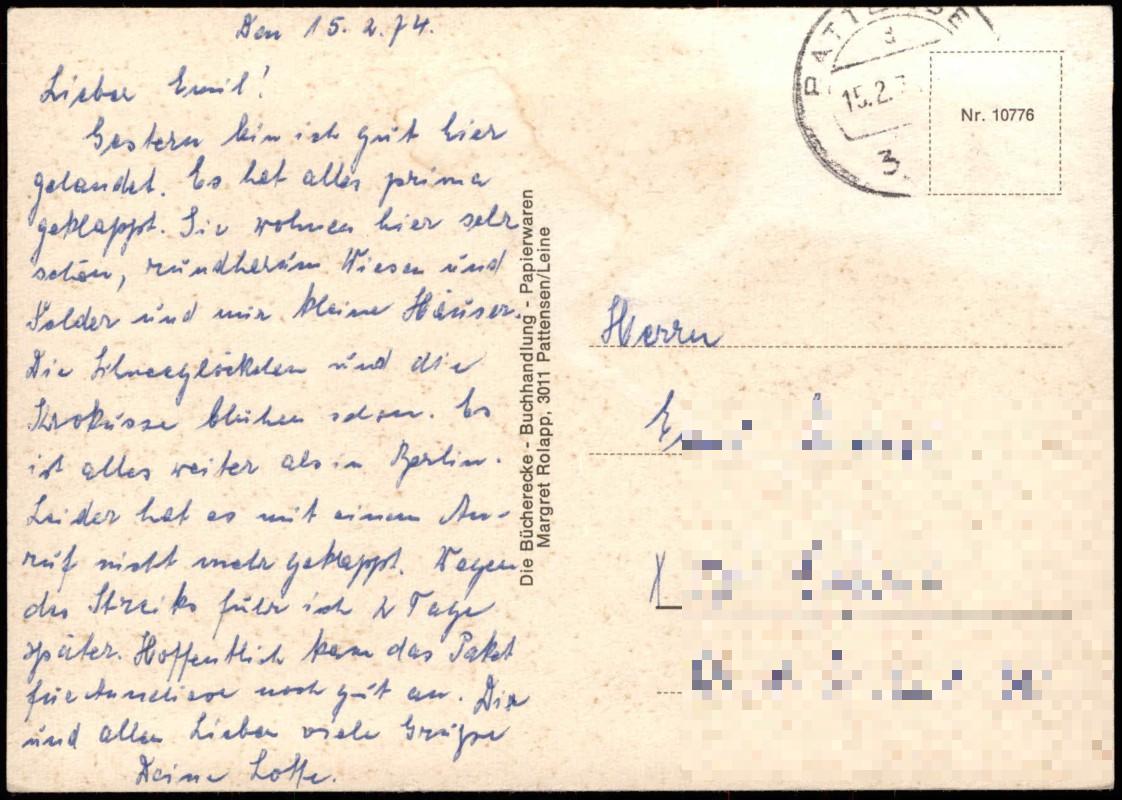 Den 15.2.74.
Lieber Emil!
Gestern bin ich gut hier
gelandet. Es hat alles prima
geklappt. Sie wohnen hier sehr
schön, rundherum Wiesen und
Felder und nur kleine Häuser.
Die Schneeglöckchen und die
Krokusse blühen schon. Es
ist alles weiter als in Berlin.
Leider hat es mit einem An-
ruf nicht mehr geklappt. Wegen
des Streiks fuhr ich 2 Tage
später. Hoffentlich kam das Paket
für Anneliese noch gut an. Dir
und allen Lieben viele Grüße
Deine Lotte.
Die Bücherecke - Buchhandlung - Papierwaren
Margret Rolapp, 3011 Pattensen/Leine
15.2.7
3
Nr. 10776
Herrn